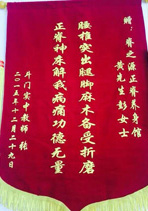 赠：脊之源正脊养身馆
黄先生彭女士
腰椎突出腿脚麻木备受折磨
正脊种床解我病痛功德无量
斗门实中教师 张
二〇一五年十二月二十九日